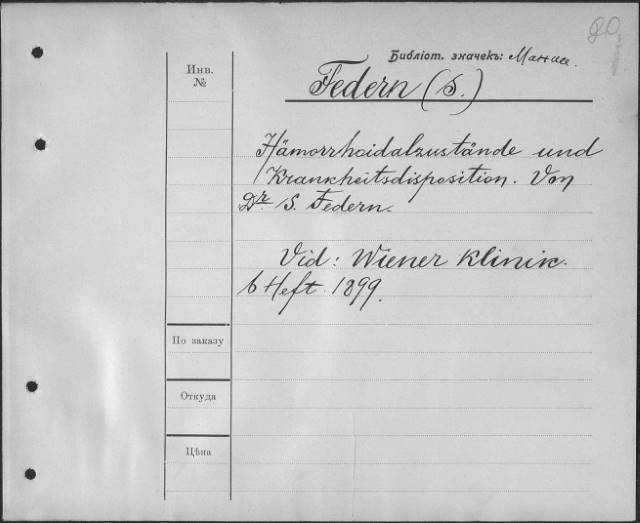 Библіот. значекъ:
Инв.
№
Federn (S.)
Hämorrhoidalzustände und
Krankheitsdisposition. Von
Dr. S. Federn.
Vid: Wiener Klinik.
6 Heft. 1899.
По заказу
Откуда
Цѣна